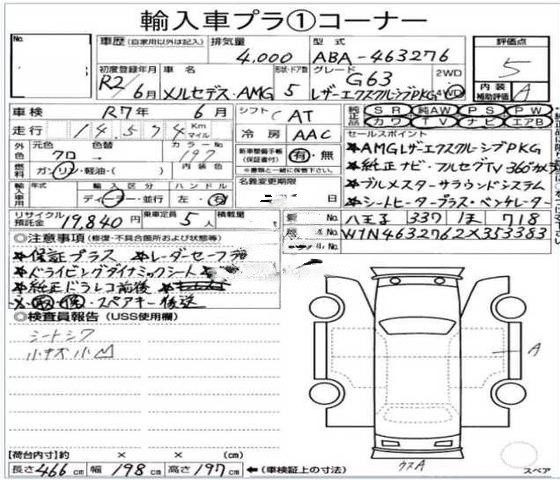 輸入車プラ①コーナー
No.
車歴(自家用以外は記入) 排気量 型式 評価点
4,000 ABA-463276 5
初度登録年月 車名 形状・ドア数 グレード 2WD 内装補助評価
R2/6月 メルセデス・AMG 5 G63 A
レザーエクスクルーシブPKG 4WD
車検 R7年 6月 シフト C AT 純正品 SR 純AW PS PW
カワ TV ナビ エアB
走行 14,574 Km マイル 冷房 AAC セールスポイント
外色 元色 色替 カラーNo. 新車整備手帳(保証書付) 有・無 ★AMGレザーエクスクルーシブPKG
クロ 197 ※書類と一緒に保管下さい。 ★純正ナビ・フルセグTV 360°カメラ
燃料 ガソリン・軽油・( ) 名義変更期限 ★ブルメスターサラウンドシステム
輸入車用 年式 輸入区分 ハンドル 月 日 ★シートヒータープラス・ベンチレーター
ディーラー・並行 左・右
リサイクル預託金 19,840円 乗車定員 5人 積載量 八王子 339 ほ 718
W1N4632762X353383
◎注意事項(修復・不具合箇所および状態等)
★保証プラス ★レーダーセーフティ
★ドライビングダイナミックシート
★純正ドラレコ前後
取・保・スペアキー後送
◎検査員報告(USS使用欄)
シートシワ
小キズ小凹
A
[荷台内寸]約 × × (cm)
長さ466cm 幅198cm 高さ197cm ←(車検証上の寸法)
ウスA
スペア